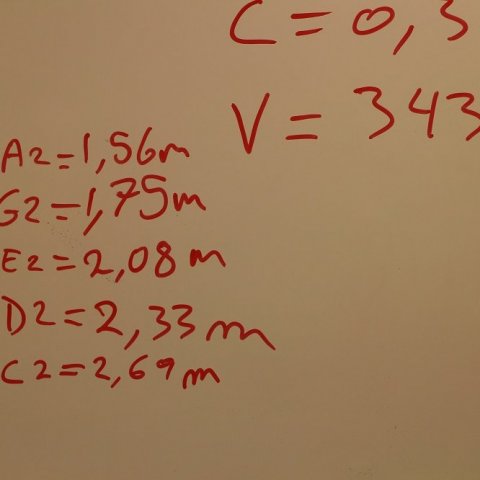 C = 0,3
V = 343
A2 = 1,56m
G2 = 1,75m
E2 = 2,08 m
D2 = 2,33 m
C2 = 2,69 m